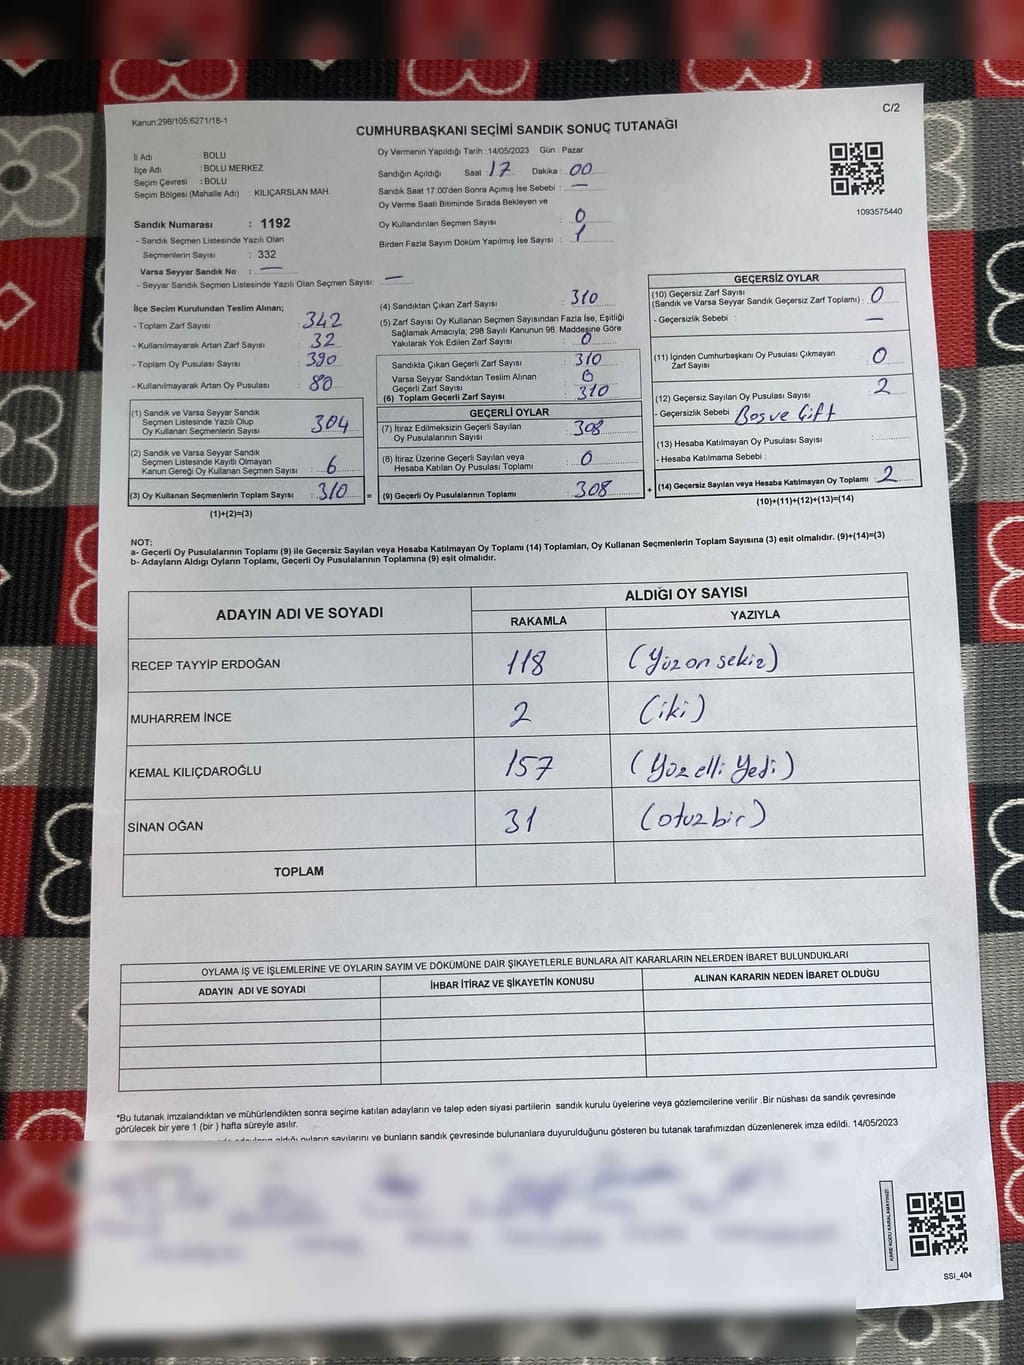 Kanun;298/105,6271/18-1
C/2
CUMHURBAŞKANI SEÇİMİ SANDIK SONUÇ TUTANAĞI
İl Adı : BOLU
İlçe Adı : BOLU MERKEZ
Seçim Çevresi : BOLU
Seçim Bölgesi (Mahalle Adı) : KILIÇARSLAN MAH.
Sandık Numarası : 1192
- Sandık Seçmen Listesinde Yazılı Olan
Seçmenlerin Sayısı : 332
Varsa Seyyar Sandık No : —
- Seyyar Sandık Seçmen Listesinde Yazılı Olan Seçmen Sayısı: —
Oy Vermenin Yapıldığı Tarih : 14/05/2023 Gün : Pazar
Sandığın Açıldığı Saat : 17 Dakika : 00
Sandık Saat 17:00'den Sonra Açımış İse Sebebi : —
Oy Verme Saati Bitiminde Sırada Bekleyen ve
Oy Kullandırılan Seçmen Sayısı : 0
Birden Fazla Sayım Döküm Yapılmış İse Sayısı : 1
1093575440
İlçe Seçim Kurulundan Teslim Alınan;
- Toplam Zarf Sayısı : 342
- Kullanılmayarak Artan Zarf Sayısı : 32
- Toplam Oy Pusulası Sayısı : 390
- Kullanılmayarak Artan Oy Pusulası : 80
(1) Sandık ve Varsa Seyyar Sandık
Seçmen Listesinde Yazılı Olup
Oy Kullanan Seçmenlerin Sayısı : 304
(2) Sandık ve Varsa Seyyar Sandık
Seçmen Listesinde Kayıtlı Olmayan
Kanun Gereği Oy Kullanan Seçmen Sayısı : 6
(3) Oy Kullanan Seçmenlerin Toplam Sayısı : 310 =
(1)+(2)=(3)
(4) Sandıktan Çıkan Zarf Sayısı : 310
(5) Zarf Sayısı Oy Kullanan Seçmen Sayısından Fazla İse, Eşitliği
Sağlamak Amacıyla; 298 Sayılı Kanunun 98. Maddesine Göre
Yakılarak Yok Edilen Zarf Sayısı : 0
Sandıkta Çıkan Geçerli Zarf Sayısı : 310
Varsa Seyyar Sandıktan Teslim Alınan
Geçerli Zarf Sayısı : 0
(6) Toplam Geçerli Zarf Sayısı : 310
GEÇERLİ OYLAR
(7) İtiraz Edilmeksizin Geçerli Sayılan
Oy Pusulalarının Sayısı : 308
(8) İtiraz Üzerine Geçerli Sayılan veya
Hesaba Katılan Oy Pusulası Toplamı : 0
(9) Geçerli Oy Pusulalarının Toplamı : 308 +
GEÇERSİZ OYLAR
(10) Geçersiz Zarf Sayısı
(Sandık ve Varsa Seyyar Sandık Geçersiz Zarf Toplamı) : 0
- Geçersizlik Sebebi : —
(11) İçinden Cumhurbaşkanı Oy Pusulası Çıkmayan
Zarf Sayısı : 0
(12) Geçersiz Sayılan Oy Pusulası Sayısı : 2
- Geçersizlik Sebebi : Boş ve Çift
(13) Hesaba Katılmayan Oy Pusulası Sayısı :
- Hesaba Katılmama Sebebi :
(14) Geçersiz Sayılan veya Hesaba Katılmayan Oy Toplamı : 2
(10)+(11)+(12)+(13)=(14)
NOT:
a- Geçerli Oy Pusulalarının Toplamı (9) ile Geçersiz Sayılan veya Hesaba Katılmayan Oy Toplamı (14) Toplamları, Oy Kullanan Seçmenlerin Toplam Sayısına (3) eşit olmalıdır. (9)+(14)=(3)
b- Adayların Aldığı Oyların Toplamı, Geçerli Oy Pusulalarının Toplamına (9) eşit olmalıdır.
ADAYIN ADI VE SOYADI
ALDIĞI OY SAYISI
RAKAMLA YAZIYLA
RECEP TAYYİP ERDOĞAN 118 (Yüz on sekiz)
MUHARREM İNCE 2 (iki)
KEMAL KILIÇDAROĞLU 157 (Yüz elli Yedi)
SİNAN OĞAN 31 (otuz bir)
TOPLAM
OYLAMA İŞ VE İŞLEMLERİNE VE OYLARIN SAYIM VE DÖKÜMÜNE DAİR ŞİKAYETLERLE BUNLARA AİT KARARLARIN NELERDEN İBARET BULUNDUKLARI
ADAYIN ADI VE SOYADI İHBAR İTİRAZ VE ŞİKAYETİN KONUSU ALINAN KARARIN NEDEN İBARET OLDUĞU
*Bu tutanak imzalandıktan ve mühürlendikten sonra seçime katılan adayların ve talep eden siyasi partilerin sandık kurulu üyelerine veya gözlemcilerine verilir .Bir nüshası da sandık çevresinde
görülecek bir yere 1 (bir ) hafta süreyle asılır.
oyların sayılarını ve bunların sandık çevresinde bulunanlara duyurulduğunu gösteren bu tutanak tarafımızdan düzenlenerek imza edildi. 14/05/2023
KARE KODU KARALAMAYINIZ!
SSI_404